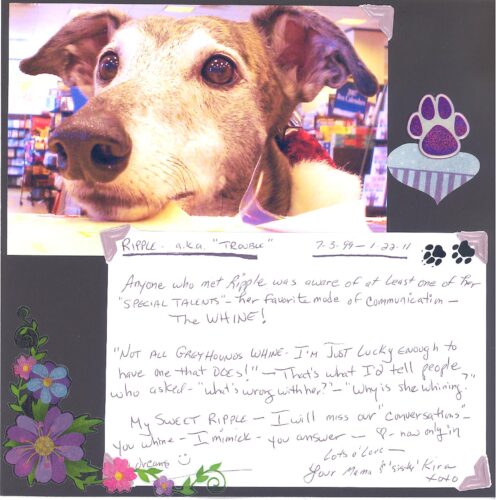 RIPPLE - a.k.a. "TROUBLE" 7-3-99 - 1-22-11
Anyone who met Ripple was aware of at least one of her
"SPECIAL TALENTS" - her favorite mode of communication -
The WHINE!
"NOT ALL GREYHOUNDS WHINE - I'm JUST LUCKY ENOUGH to
have one that DOES!" - That's what I'd tell people
who asked - "what's wrong with her?" - "Why is she whining?"
My SWEET RIPPLE - I will miss our "conversations" -
you whine - I mimick - you answer - ♡ - now only in
dreams ☺ Lots o' Love -
Your Mama & "sister" Kira
xoxo